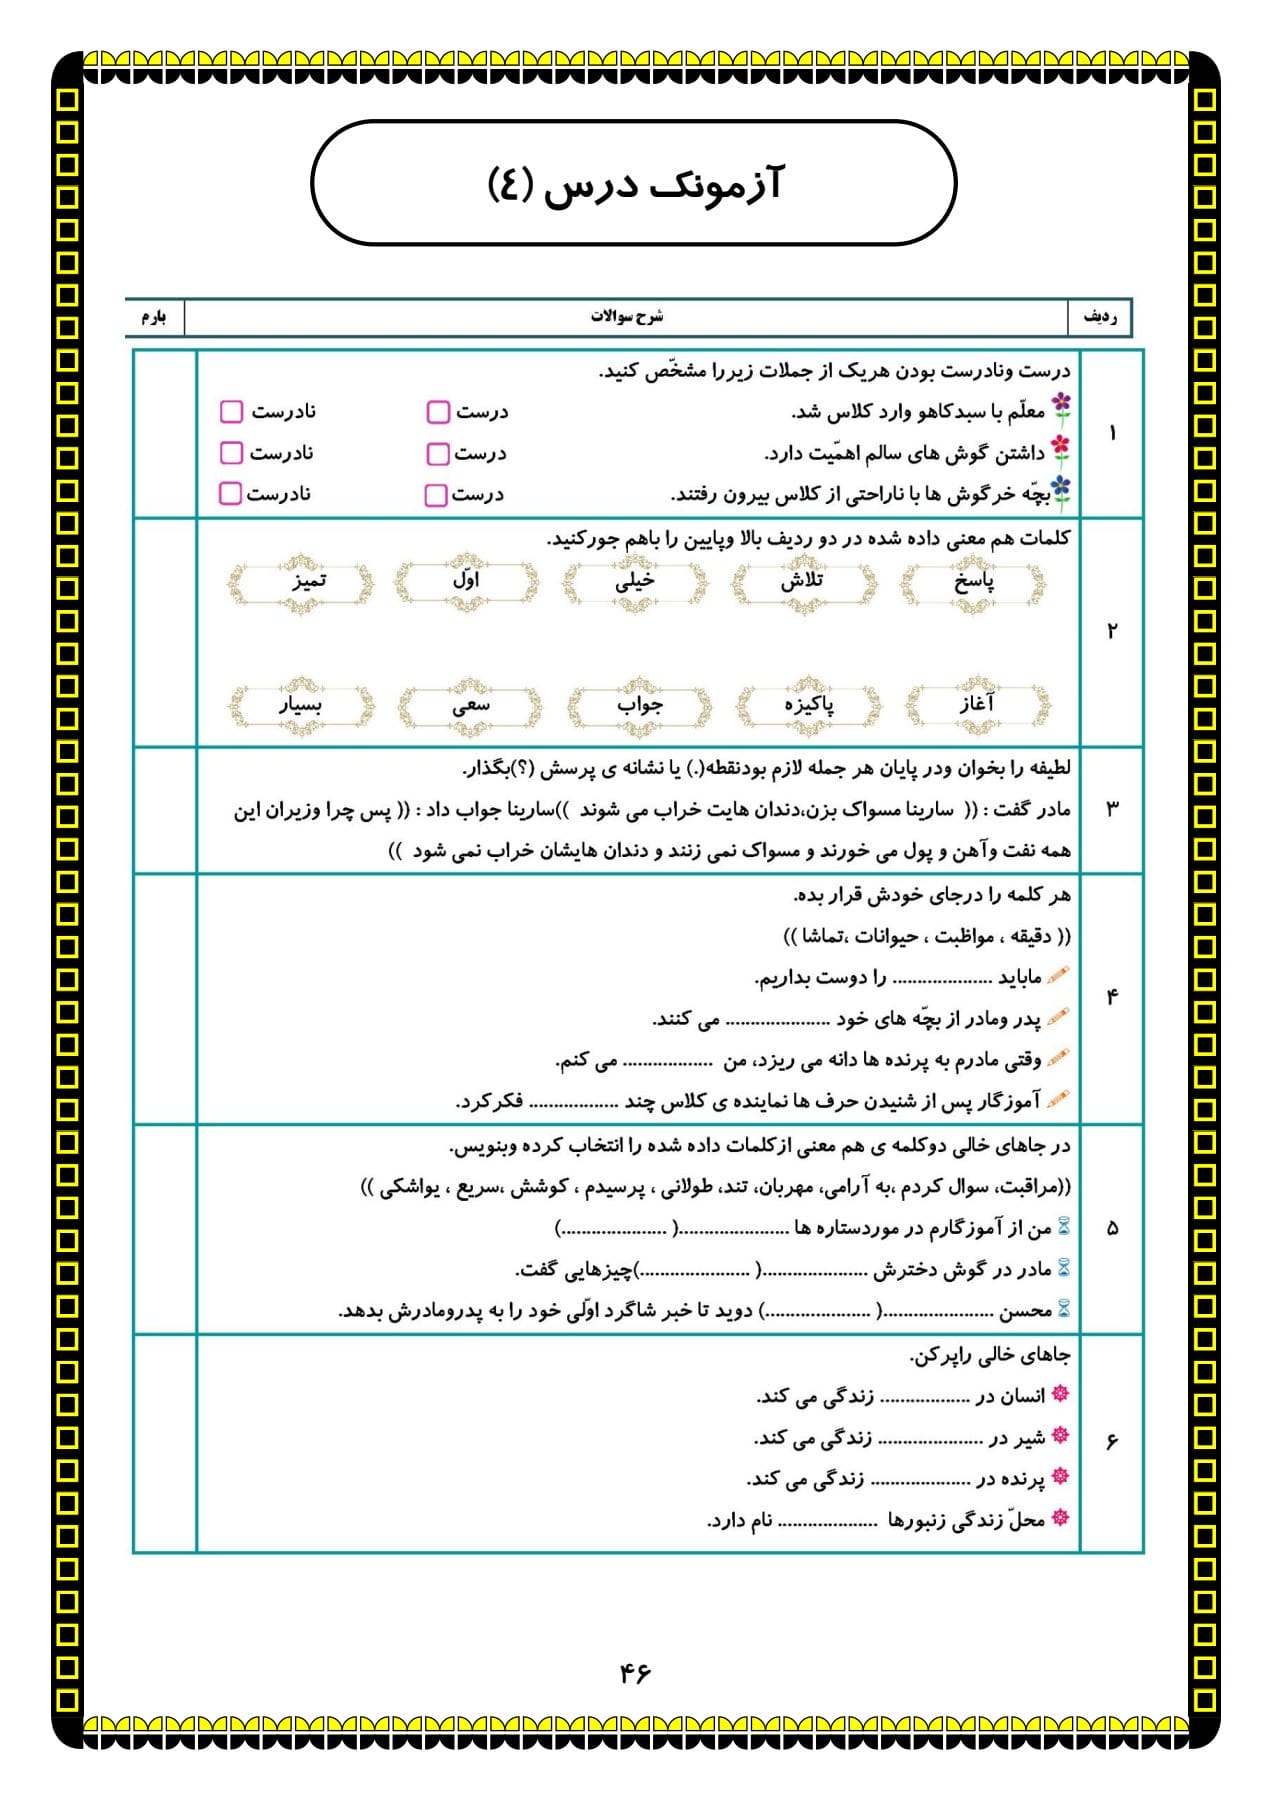 آزمونک درس (٤)
ردیف شرح سوالات بارم
۱
درست ونادرست بودن هریک از جملات زیررا مشخّص کنید.
معلّم با سبدکاهو وارد کلاس شد. درست نادرست
داشتن گوش های سالم اهمّیت دارد. درست نادرست
بچّه خرگوش ها با ناراحتی از کلاس بیرون رفتند. درست نادرست
۲
کلمات هم معنی داده شده در دو ردیف بالا وپایین را باهم جورکنید.
پاسخ تلاش خیلی اوّل تمیز
آغاز پاکیزه جواب سعی بسیار
۳
لطیفه را بخوان ودر پایان هر جمله لازم بودنقطه(.) یا نشانه ی پرسش (؟)بگذار.
مادر گفت : (( سارینا مسواک بزن،دندان هایت خراب می شوند ))سارینا جواب داد : (( پس چرا وزیران این
همه نفت وآهن و پول می خورند و مسواک نمی زنند و دندان هایشان خراب نمی شود ))
۴
هر کلمه را درجای خودش قرار بده.
(( دقیقه ، مواظبت ، حیوانات ،تماشا ))
ماباید .................... را دوست بداریم.
پدر ومادر از بچّه های خود ..................... می کنند.
وقتی مادرم به پرنده ها دانه می ریزد، من .................. می کنم.
آموزگار پس از شنیدن حرف ها نماینده ی کلاس چند .................. فکرکرد.
۵
در جاهای خالی دوکلمه ی هم معنی ازکلمات داده شده را انتخاب کرده وبنویس.
((مراقبت، سوال کردم ،به آرامی، مهربان، تند، طولانی ، پرسیدم ، کوشش ،سریع ، یواشکی ))
من از آموزگارم در موردستاره ها ......................( .....................)
مادر در گوش دخترش .....................( ......................)چیزهایی گفت.
محسن ......................( .....................) دوید تا خبر شاگرد اوّلی خود را به پدرومادرش بدهد.
۶
جاهای خالی راپرکن.
انسان در .................. زندگی می کند.
شیر در ..................... زندگی می کند.
پرنده در .................... زندگی می کند.
محلّ زندگی زنبورها .................... نام دارد.
۴۶